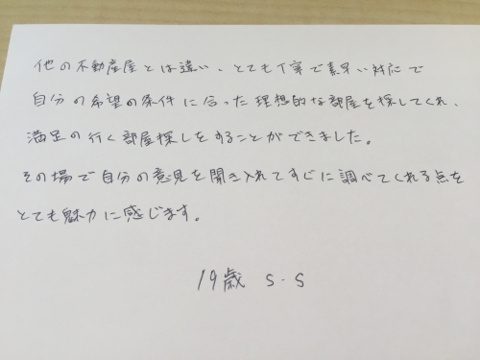 他の不動産屋とは違い、とても丁寧で素早い対応で
自分の希望の条件に合った理想的な部屋を探してくれ、
満足の行く部屋探しをすることができました。
その場で自分の意見を聞き入れてすぐに調べてくれる点を
とても魅力に感じます。
19歳 S.S